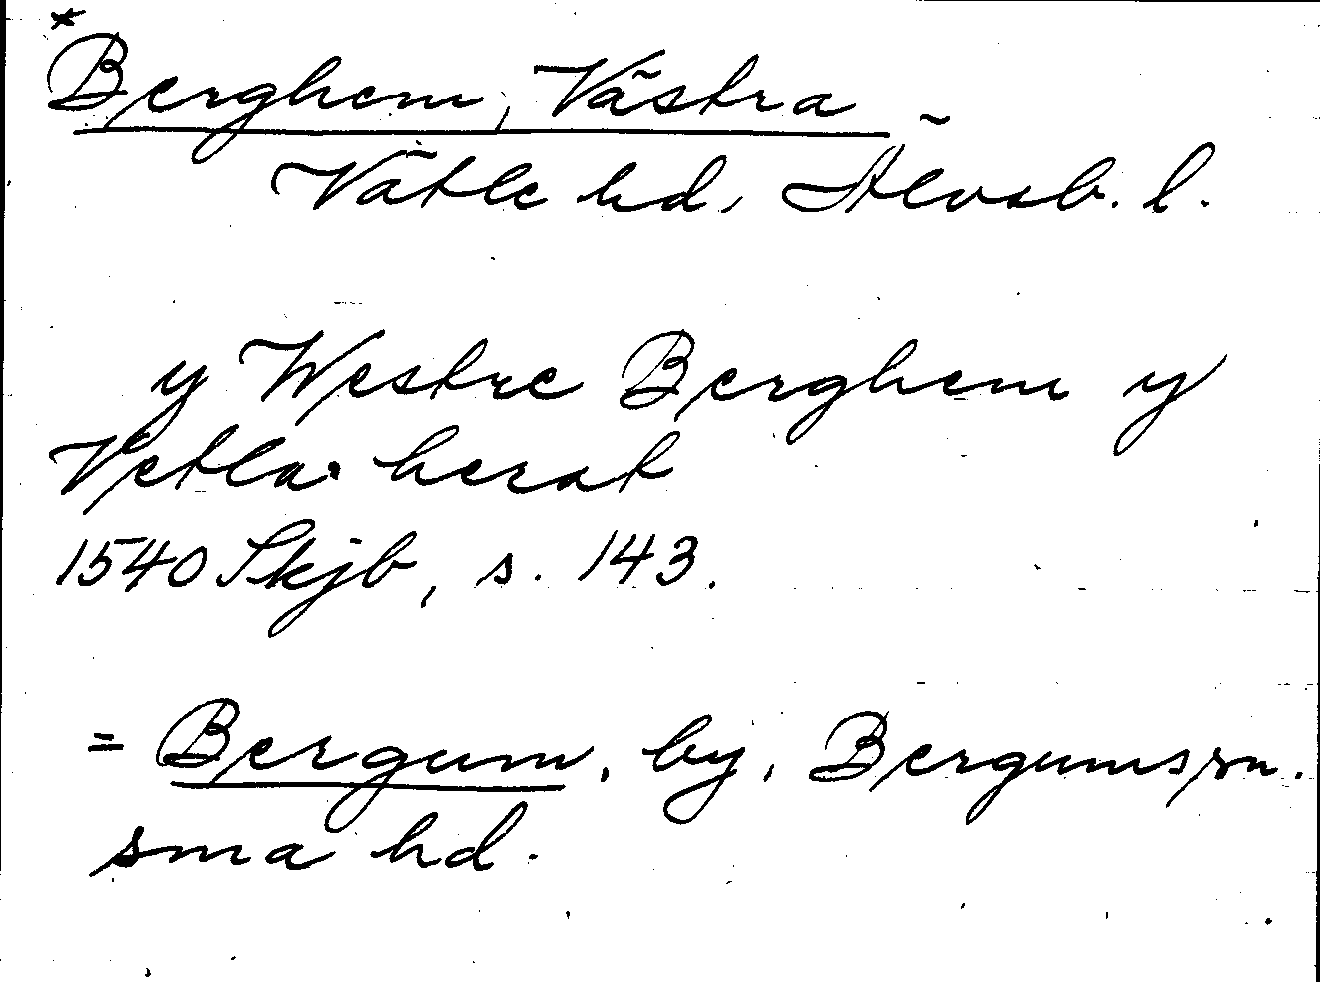 *
Berghem, Västra
Vätle hd, Älvsb. l.
y Westre Berghem y
Vetla herat
1540 Skjb, s. 143.
= Bergum, by, Bergums sn.
sma hd.